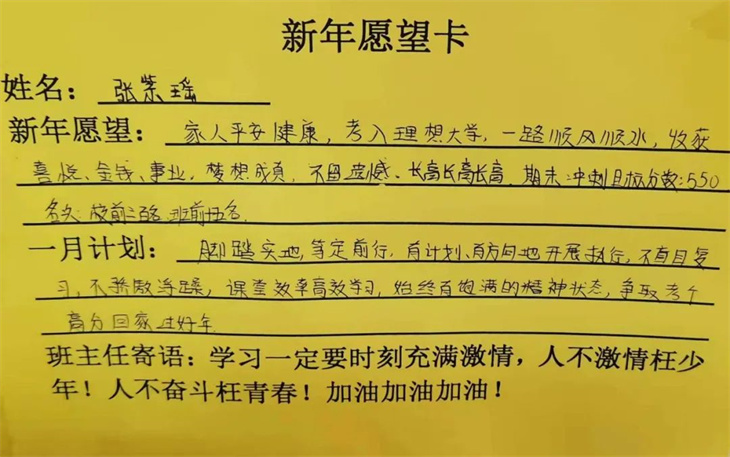 新年愿望卡
姓名：张紫瑶
新年愿望：家人平安健康，考入理想大学，一路顺风顺水，收获
喜悦、金钱、事业，梦想成真，不留遗憾、长高长高长高，期末冲刺目标分数：550
名次：校前二百名 班前五名
一月计划：脚踏实地，笃定前行，有计划、有方向地开展执行，不盲目复
习，不骄傲浮躁，课堂效率高效学习，始终有饱满的精神状态，争取考个
高分回家过好年
班主任寄语：学习一定要时刻充满激情，人不激情枉少
年！人不奋斗枉青春！加油加油加油！